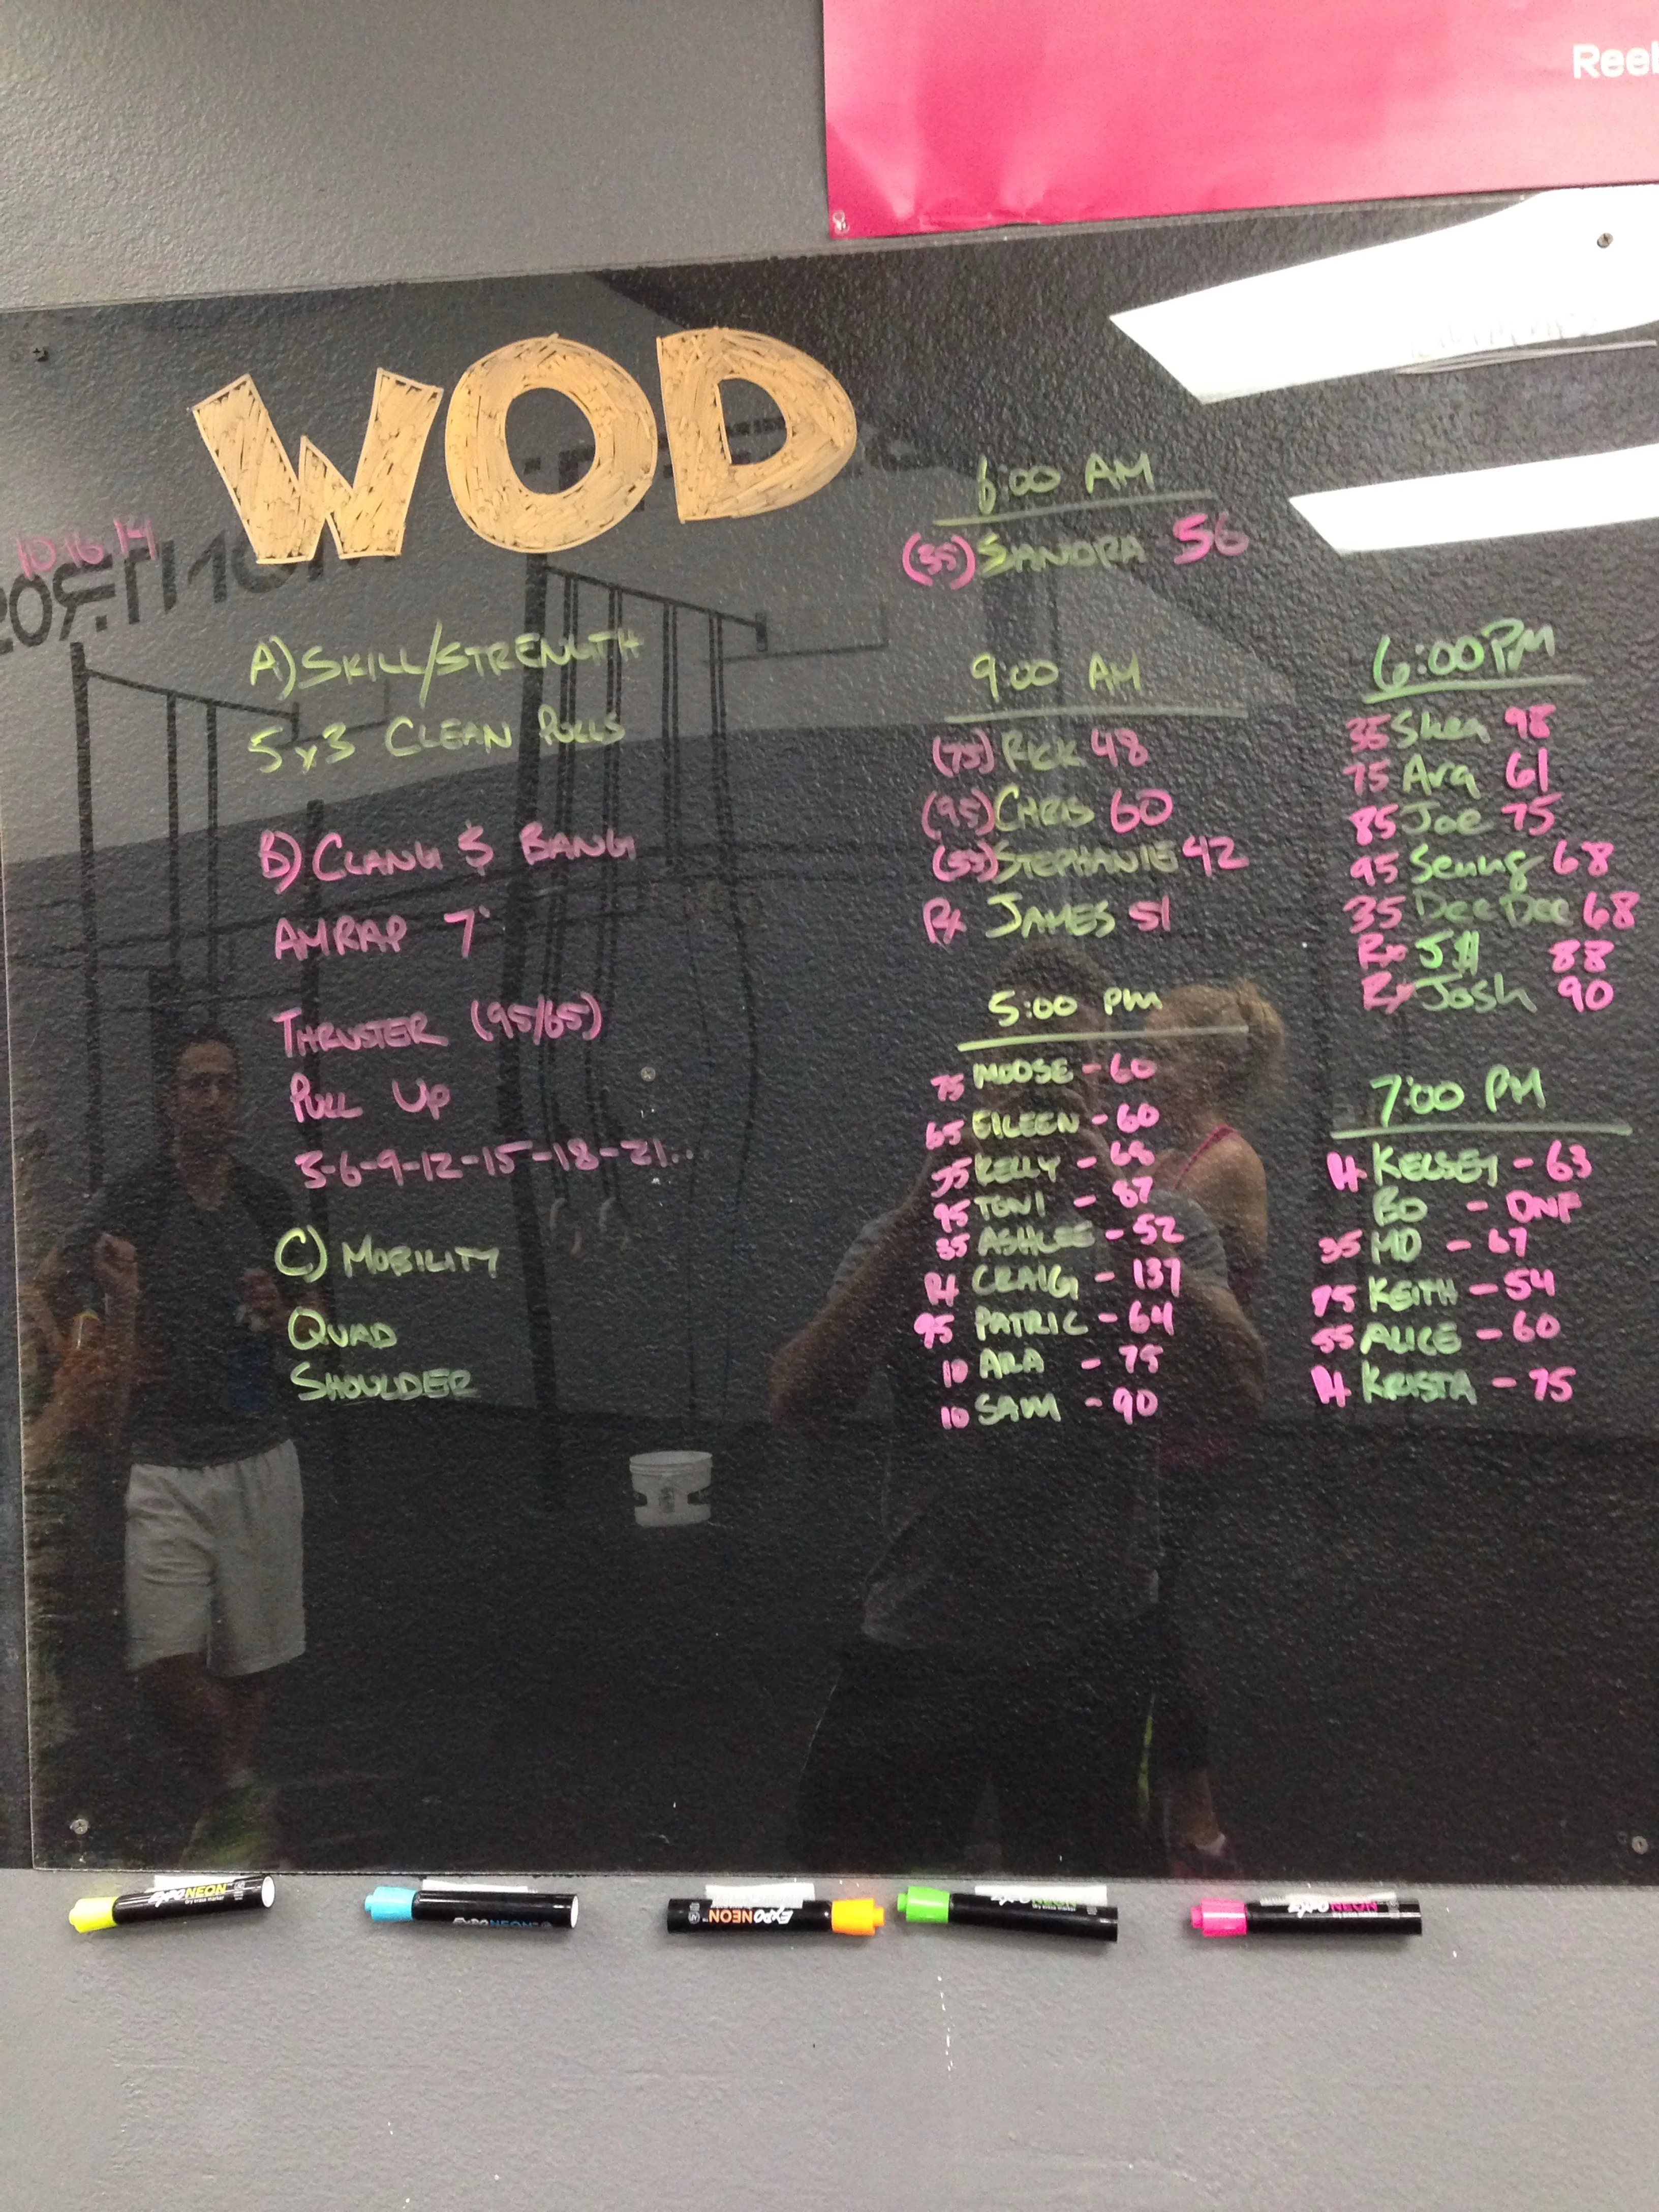 Reeb
WOD
10.16.14
A) SKILL/STRENGTH
5x3 CLEAN PULLS
B) CLANG & BANG
AMRAP 7'
THRUSTER (95/65)
PULL UP
3-6-9-12-15-18-21...
C) MOBILITY
QUAD
SHOULDER
6:00 AM
(35) SANDRA 56
9:00 AM
(75) RICK 48
(95) CHRIS 60
(55) STEPHANIE 42
Rx JAMES 51
5:00 PM
75 MOOSE - 60
65 EILEEN - 60
55 KELLY - 68
95 TONI - 87
35 ASHLEE - 52
Rx CRAIG - 137
95 PATRIC - 64
10 ARA - 75
10 SAM - 90
6:00 PM
35 Shea 98
75 Ara 61
85 Joe 75
95 Seung 68
35 Dee Dee 68
Rx J$ 88
Rx Josh 90
7:00 PM
Rx KELSEY - 63
BO - DNF
35 MO - 67
KEITH - 54
55 ALICE - 60
Rx KRISTA - 75
EXPO NEON
EXPO NEON
EXPO NEON
EXPO NEON
EXPO NEON